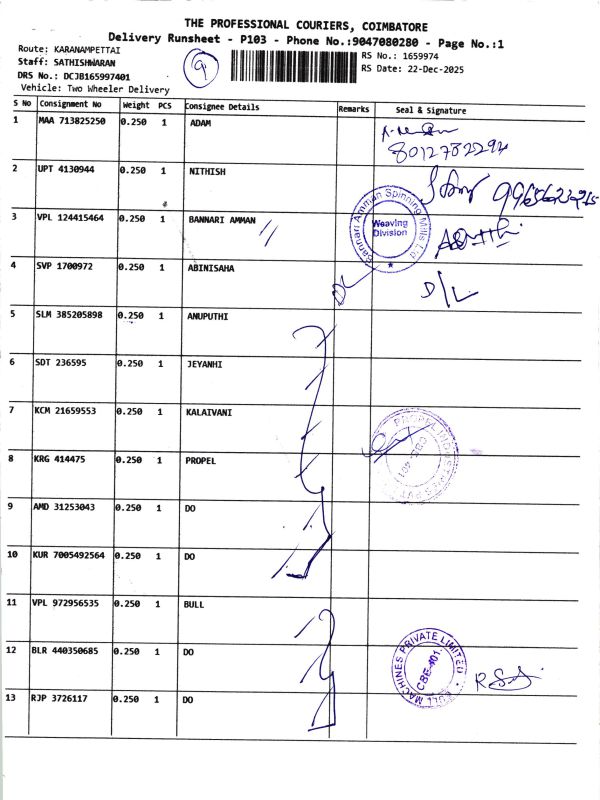 THE PROFESSIONAL COURIERS, COIMBATORE
Delivery Runsheet - P103 - Phone No.:9047080280 - Page No.:1
Route: KARANAMPETTAI
Staff: SATHISHWARAN
DRS No.: DCJB165997401
Vehicle: Two Wheeler Delivery
9
RS No.: 1659974
RS Date: 22-Dec-2025
S No Consignment No Weight PCS Consignee Details Remarks Seal & Signature
1 MAA 713825250 0.250 1 ADAM
8012782294
2 UPT 4130944 0.250 1 NITHISH
#
3 VPL 124415464 0.250 1 BANNARI AMMAN //
Bannari Amman Spinning Mills Ltd
Weaving
Division
4 SVP 1700972 0.250 1 ABINISAHA
DL D/L
5 SLM 385205898 0.250 1 ANUPUTHI
6 SDT 236595 0.250 1 JEYANHI
7 KCM 21659553 0.250 1 KALAIVANI
8 KRG 414475 0.250 1 PROPEL
9 AMD 31253043 0.250 1 DO
10 KUR 7005492564 0.250 1 DO
11 VPL 972956535 0.250 1 BULL
12 BLR 440350685 0.250 1 DO
BULL MACHINES PRIVATE LIMITED
CBE-401.
13 RJP 3726117 0.250 1 DO